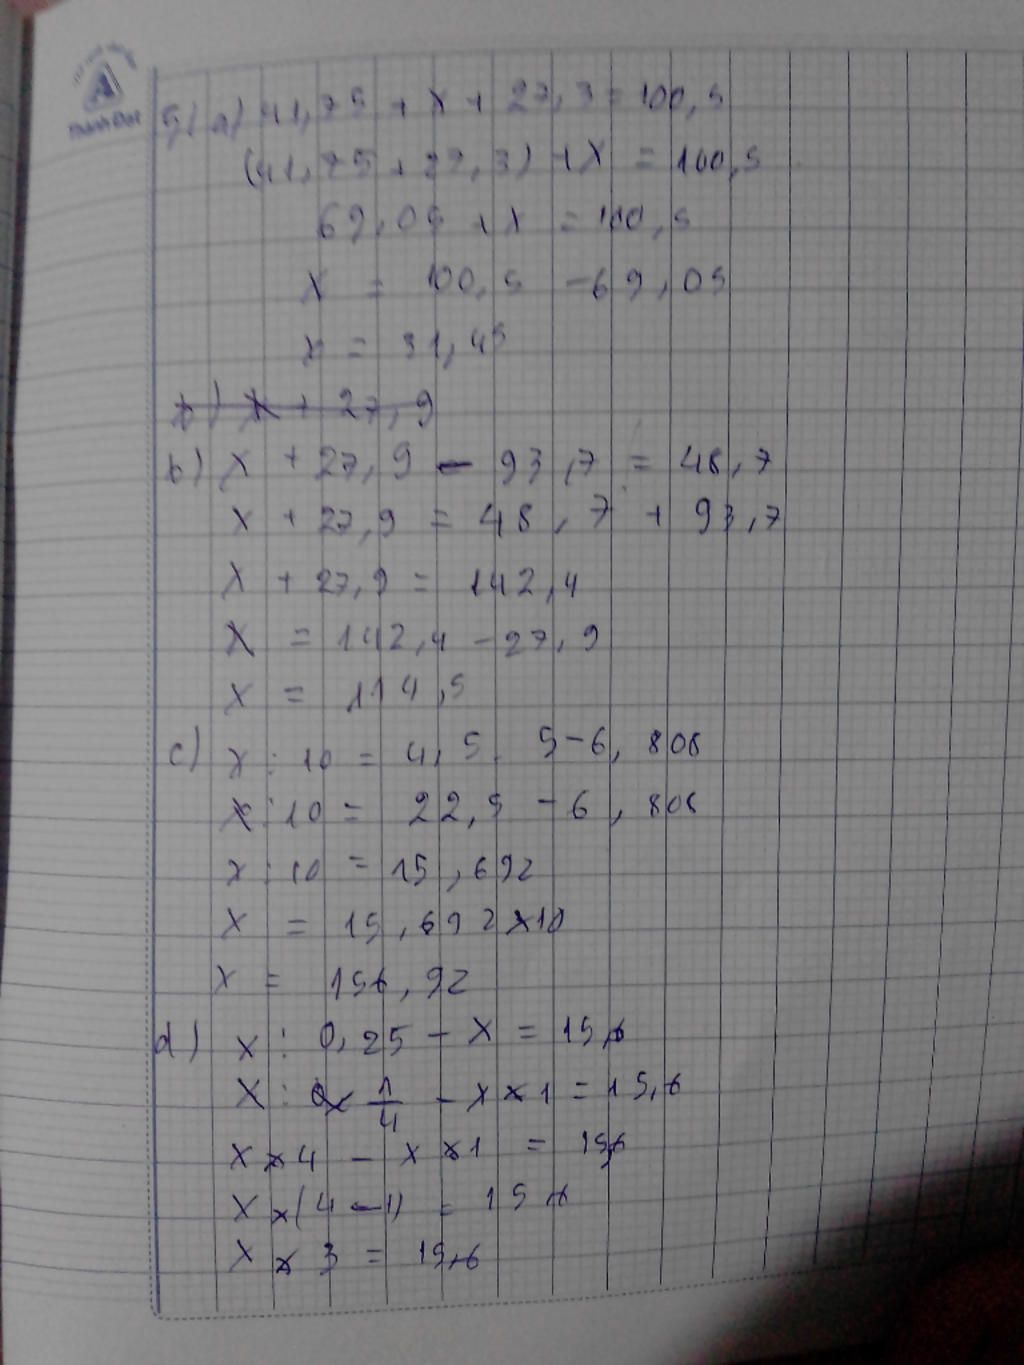 5/ a) 41,75 + x + 27,3 = 100,5
(41,75 + 27,3) + x = 100,5
69,05 + x = 100,5
x = 100,5 - 69,05
x = 31,45
b) x + 27,9
b) x + 27,9 - 93,7 = 48,7
x + 27,9 = 48,7 + 93,7
x + 27,9 = 142,4
x = 142,4 - 27,9
x = 114,5
c) x : 10 = 4,5 . 5 - 6,808
x : 10 = 22,5 - 6,808
x : 10 = 15,692
x = 15,692 x 10
x = 156,92
d) x : 0,25 - x = 15,6
x : 1/4 - x x 1 = 15,6
x x 4 - x x 1 = 15,6
x x (4 - 1) = 15,6
x x 3 = 15,6